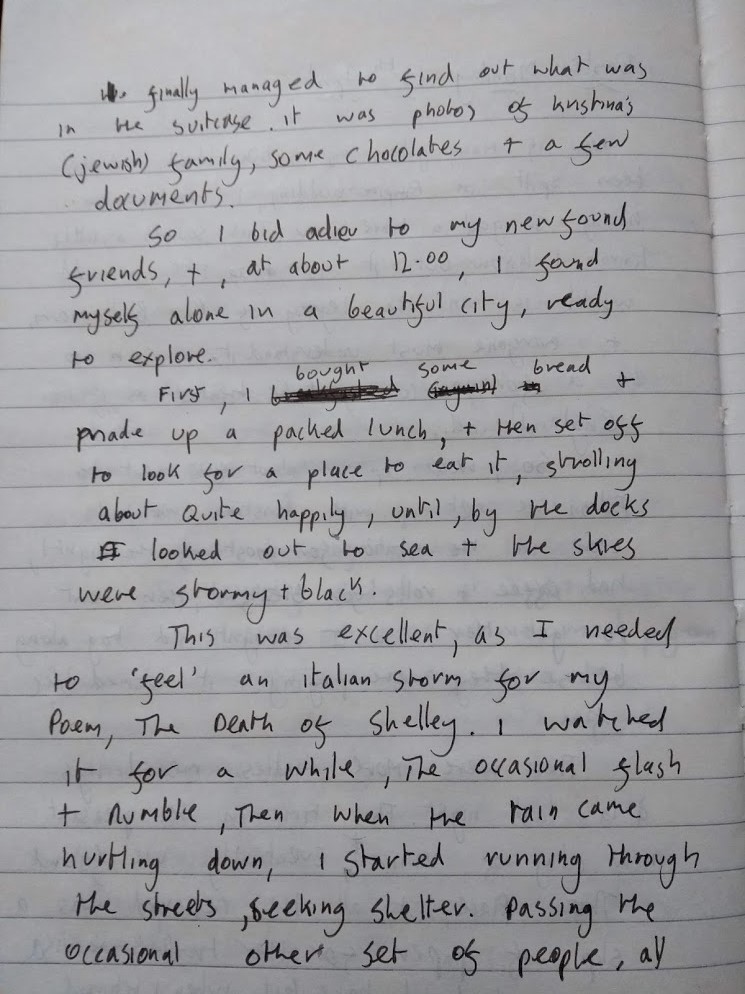 finally managed to find out what was
in the suitcase. it was photos of kristina's
(jewish) family, some chocolates + a few
documents.
So I bid adieu to my newfound
friends, +, at about 12.00, I found
myself alone in a beautiful city, ready
to explore.
First, I bought some bread +
made up a packed lunch, + then set off
to look for a place to eat it, strolling
about Quite happily, until, by the docks
I looked out to sea + the skies
were stormy + black.
This was excellent, as I needed
to 'feel' an italian storm for my
Poem, The Death of Shelley. I watched
it for a while, The occasional flash
+ rumble, Then when the rain came
hurtling down, I started running through
the streets, seeking shelter. Passing the
occasional other set of people, all